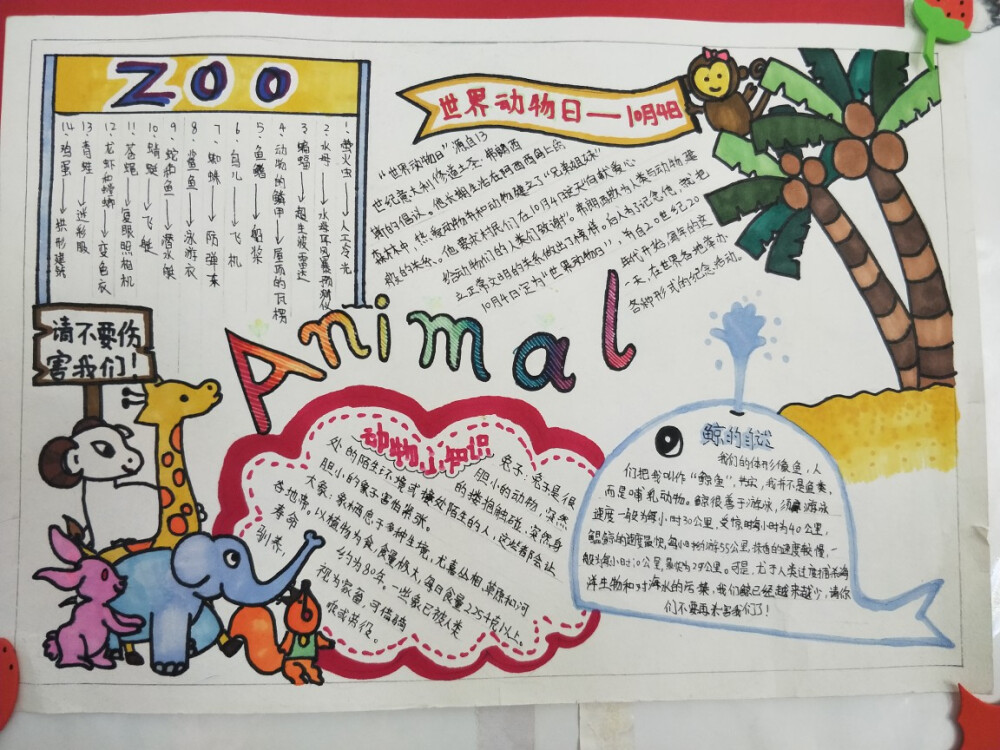 ZOO
1、萤火虫→人工冷光
2、水母→水母耳风暴预测仪
3、蝙蝠→超生波雷达
4、动物的鳞甲→屋顶的瓦楞
5、鱼鳍→船桨
6、鸟儿→飞机
7、蜘蛛→防弹衣
8、鲨鱼→泳游衣
9、鲸和鱼→潜水艇
10、蜻蜓→飞艇
11、苍蝇→复眼照相机
12、龙虾和螃螂→变色衣
13、青蛙→迷彩服
14、鸡蛋→拱形建筑
世界动物日——10月4日
"世界动物日"源自13
世纪意大利修道士圣·弗朗西
斯的倡议。他长期生活在阿西西岛上的
森林中,热爱动物并和动物建立了"兄弟姐妹"
般的关系。他要求村民们在10月4日这天"向献爱心
给动物们的人类们致谢"。弗朗西斯为人类与动物建
立正常文明的关系做出了榜样。后人为了纪念他,就把
10月4日定为"世界动物日",并自20世纪20
年代开始,每年的这
一天,在世界各地举办
各种形式的纪念活动。
Animal
请不要伤
害我们!
动物小知识
兔子:兔子是很
胆小的动物,突然
的搂抱触碰,突然身
处的陌生环境或接处陌生的人,这些都会让
胆小的兔子害怕紧张。
大象:象栖息于多种生境,尤喜丛相、草原和河
谷地带。以植物为食,食量极大,每日食量225千克以上。
寿命约为80年。一些象已被人类
驯养,视为家畜,可供骑
乘或劳役。
鲸的自述
我们的体形像鱼,人
们把我叫作"鲸鱼",其实,我并不是鱼类,
而是哺乳动物。鲸很善于游泳,须鲸游泳
速度一般为每小时30公里,受惊时每小时为40公里,
鲲鲸的速度最快,每小时游55公里,抹香鲸速度较慢,一
般为每小时10公里,最快为29公里。可是,尤于人类过度捕杀海
洋生物和对海水的污染,我们鲸已经越来越少,请你
们不要再来害我们了!